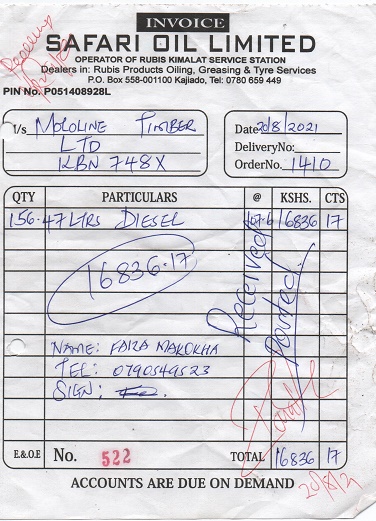 INVOICE
SAFARI OIL LIMITED
OPERATOR OF RUBIS KIMALAT SERVICE STATION
Dealers in: Rubis Products Oiling, Greasing & Tyre Services
P.O. Box 558-001100 Kajiado, Tel: 0780 659 449
PIN No. P051408928L
M/s MOLOLINE TIMBER
LTD
KBN 748X
Date 20/8/2021
DeliveryNo:
OrderNo. 1410
QTY PARTICULARS @ KSHS. CTS
156.47 LTRS DIESEL 107.6 16836 17
16836.17
Received
Posted
NAME: FAIZA MAKOKHA
TEL: 0790549523
SIGN:
E.&O.E No. 522 TOTAL 16836 17
20/8/21
ACCOUNTS ARE DUE ON DEMAND